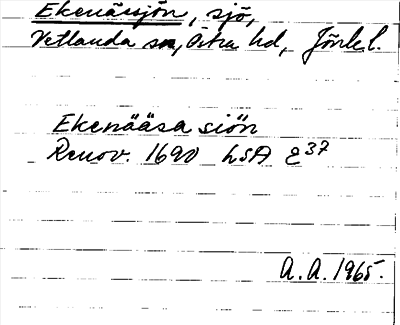 Ekenässjön, sjö,
Vetlanda sn, Östra hd, Jönk.l.
Ekenääsa siön
Renov. 1690 LSA E37
A.A. 1965.